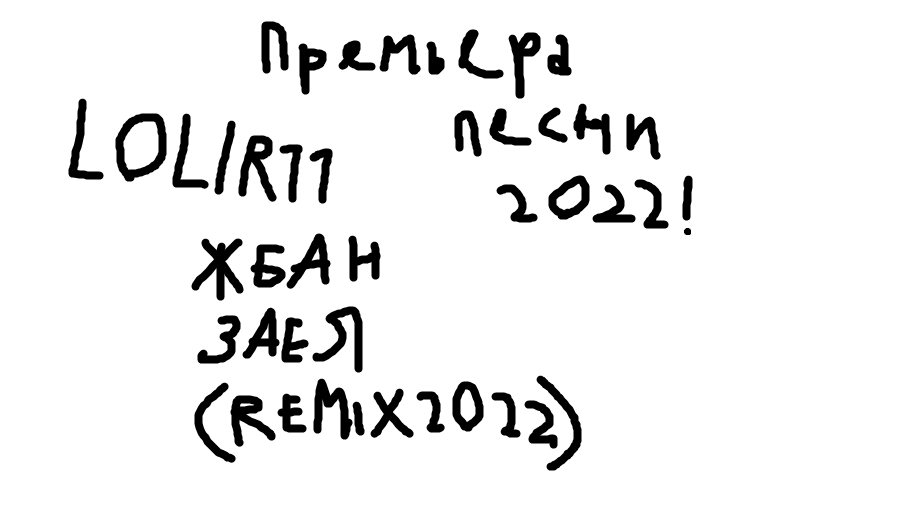 Премьера
песни
2022!
LOLIR11
ЖБАН
ЗАЕЯ
(REMIX2022)